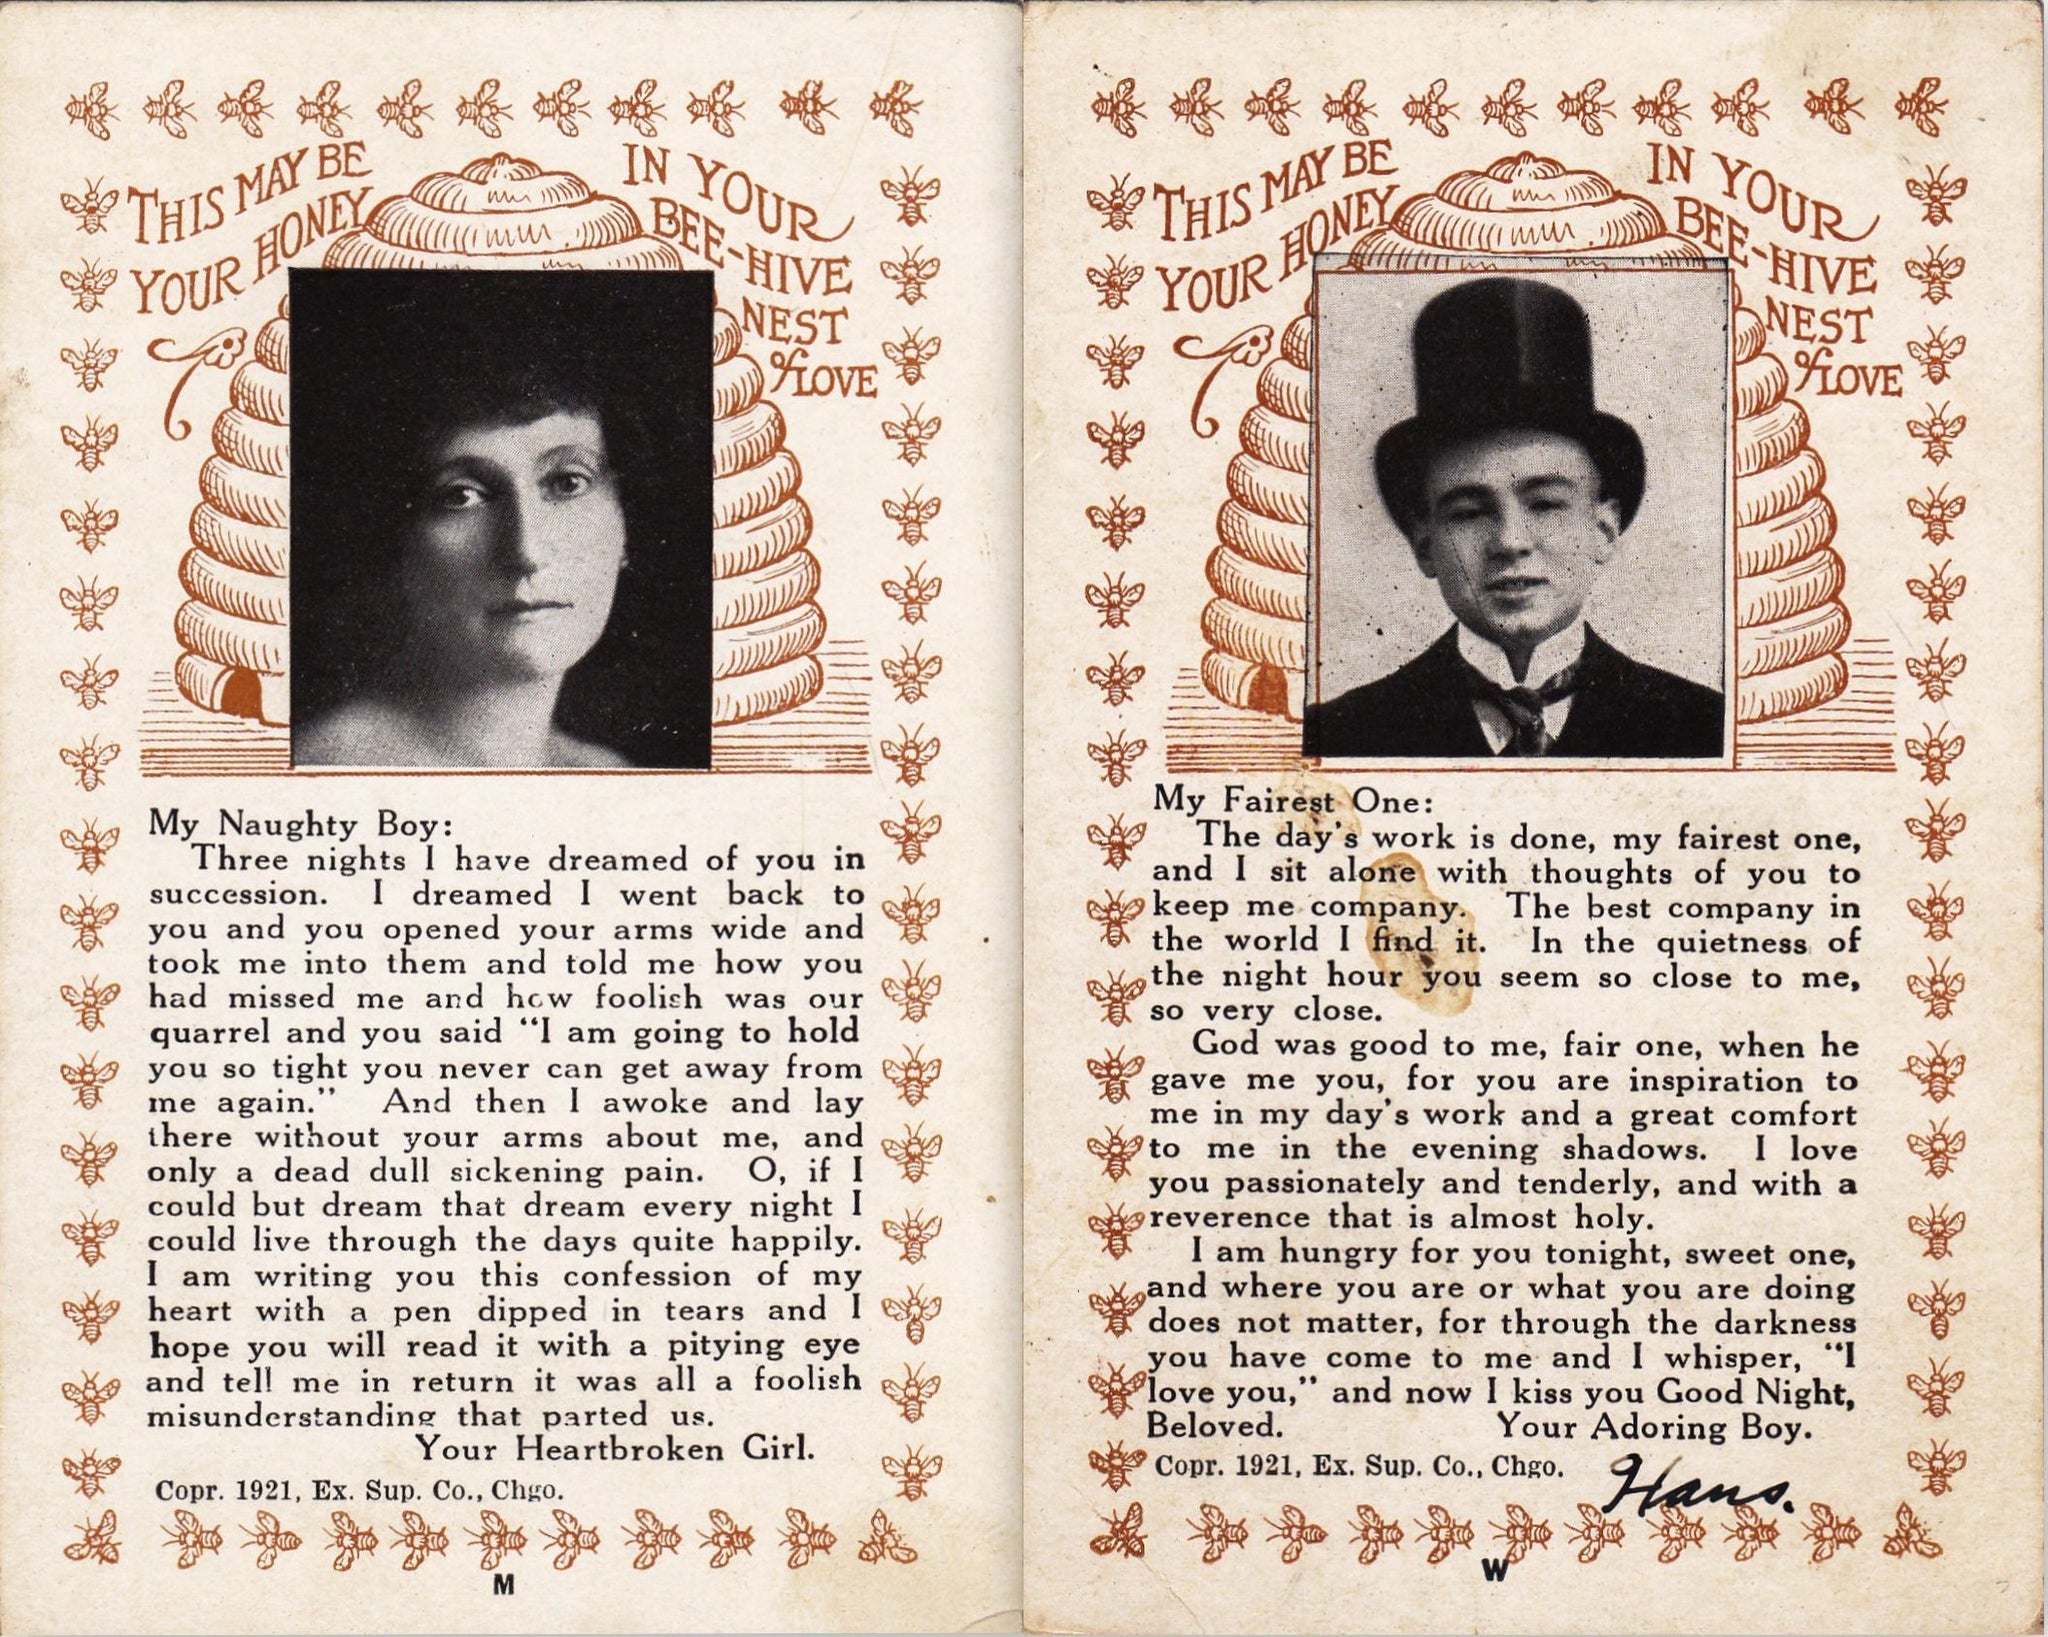 THIS MAY BE
YOUR HONEY
IN YOUR
BEE-HIVE
NEST
of LOVE
My Naughty Boy:
Three nights I have dreamed of you in
succession. I dreamed I went back to
you and you opened your arms wide and
took me into them and told me how you
had missed me and how foolish was our
quarrel and you said "I am going to hold
you so tight you never can get away from
me again." And then I awoke and lay
there without your arms about me, and
only a dead dull sickening pain. O, if I
could but dream that dream every night I
could live through the days quite happily.
I am writing you this confession of my
heart with a pen dipped in tears and I
hope you will read it with a pitying eye
and tell me in return it was all a foolish
misunderstanding that parted us.
Your Heartbroken Girl.
Copr. 1921, Ex. Sup. Co., Chgo.
M
THIS MAY BE
YOUR HONEY
IN YOUR
BEE-HIVE
NEST
of LOVE
My Fairest One:
The day's work is done, my fairest one,
and I sit alone with thoughts of you to
keep me company. The best company in
the world I find it. In the quietness of
the night hour you seem so close to me,
so very close.
God was good to me, fair one, when he
gave me you, for you are inspiration to
me in my day's work and a great comfort
to me in the evening shadows. I love
you passionately and tenderly, and with a
reverence that is almost holy.
I am hungry for you tonight, sweet one,
and where you are or what you are doing
does not matter, for through the darkness
you have come to me and I whisper, "I
love you," and now I kiss you Good Night,
Beloved. Your Adoring Boy.
Copr. 1921, Ex. Sup. Co., Chgo.
Hans.
W